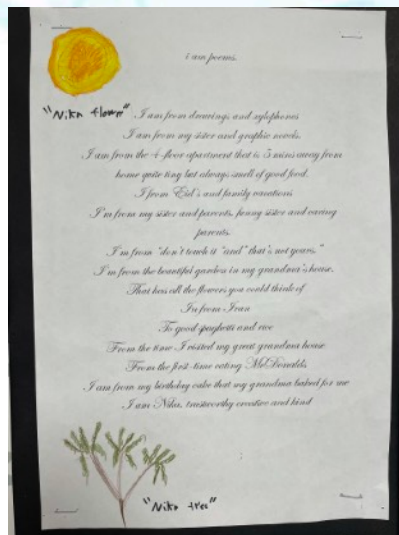 i am poems.
"Nika flower"
I am from drawings and xylophones
I am from my sister and graphic novels.
I am from the 4-floor apartment that is 5 mins away from
home quite tiny but always smell of good food.
I from Eid's and family vacations
I'm from my sister and parents, funny sister and caring
parents.
I'm from "don't touch it "and" that's not yours."
I'm from the beautiful garden in my grandma's house.
That has all the flowers you could think of
In from Iran
To good spaghetti and rice
From the time I visited my great grandma house
From the first-time eating McDonalds
I am from my birthday cake that my grandma baked for me
I am Nika, trustworthy creative and kind
"Nika tree"